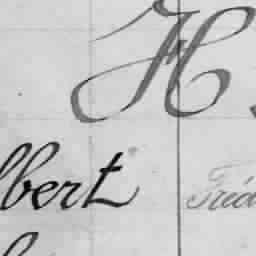 H
lbert Fréd